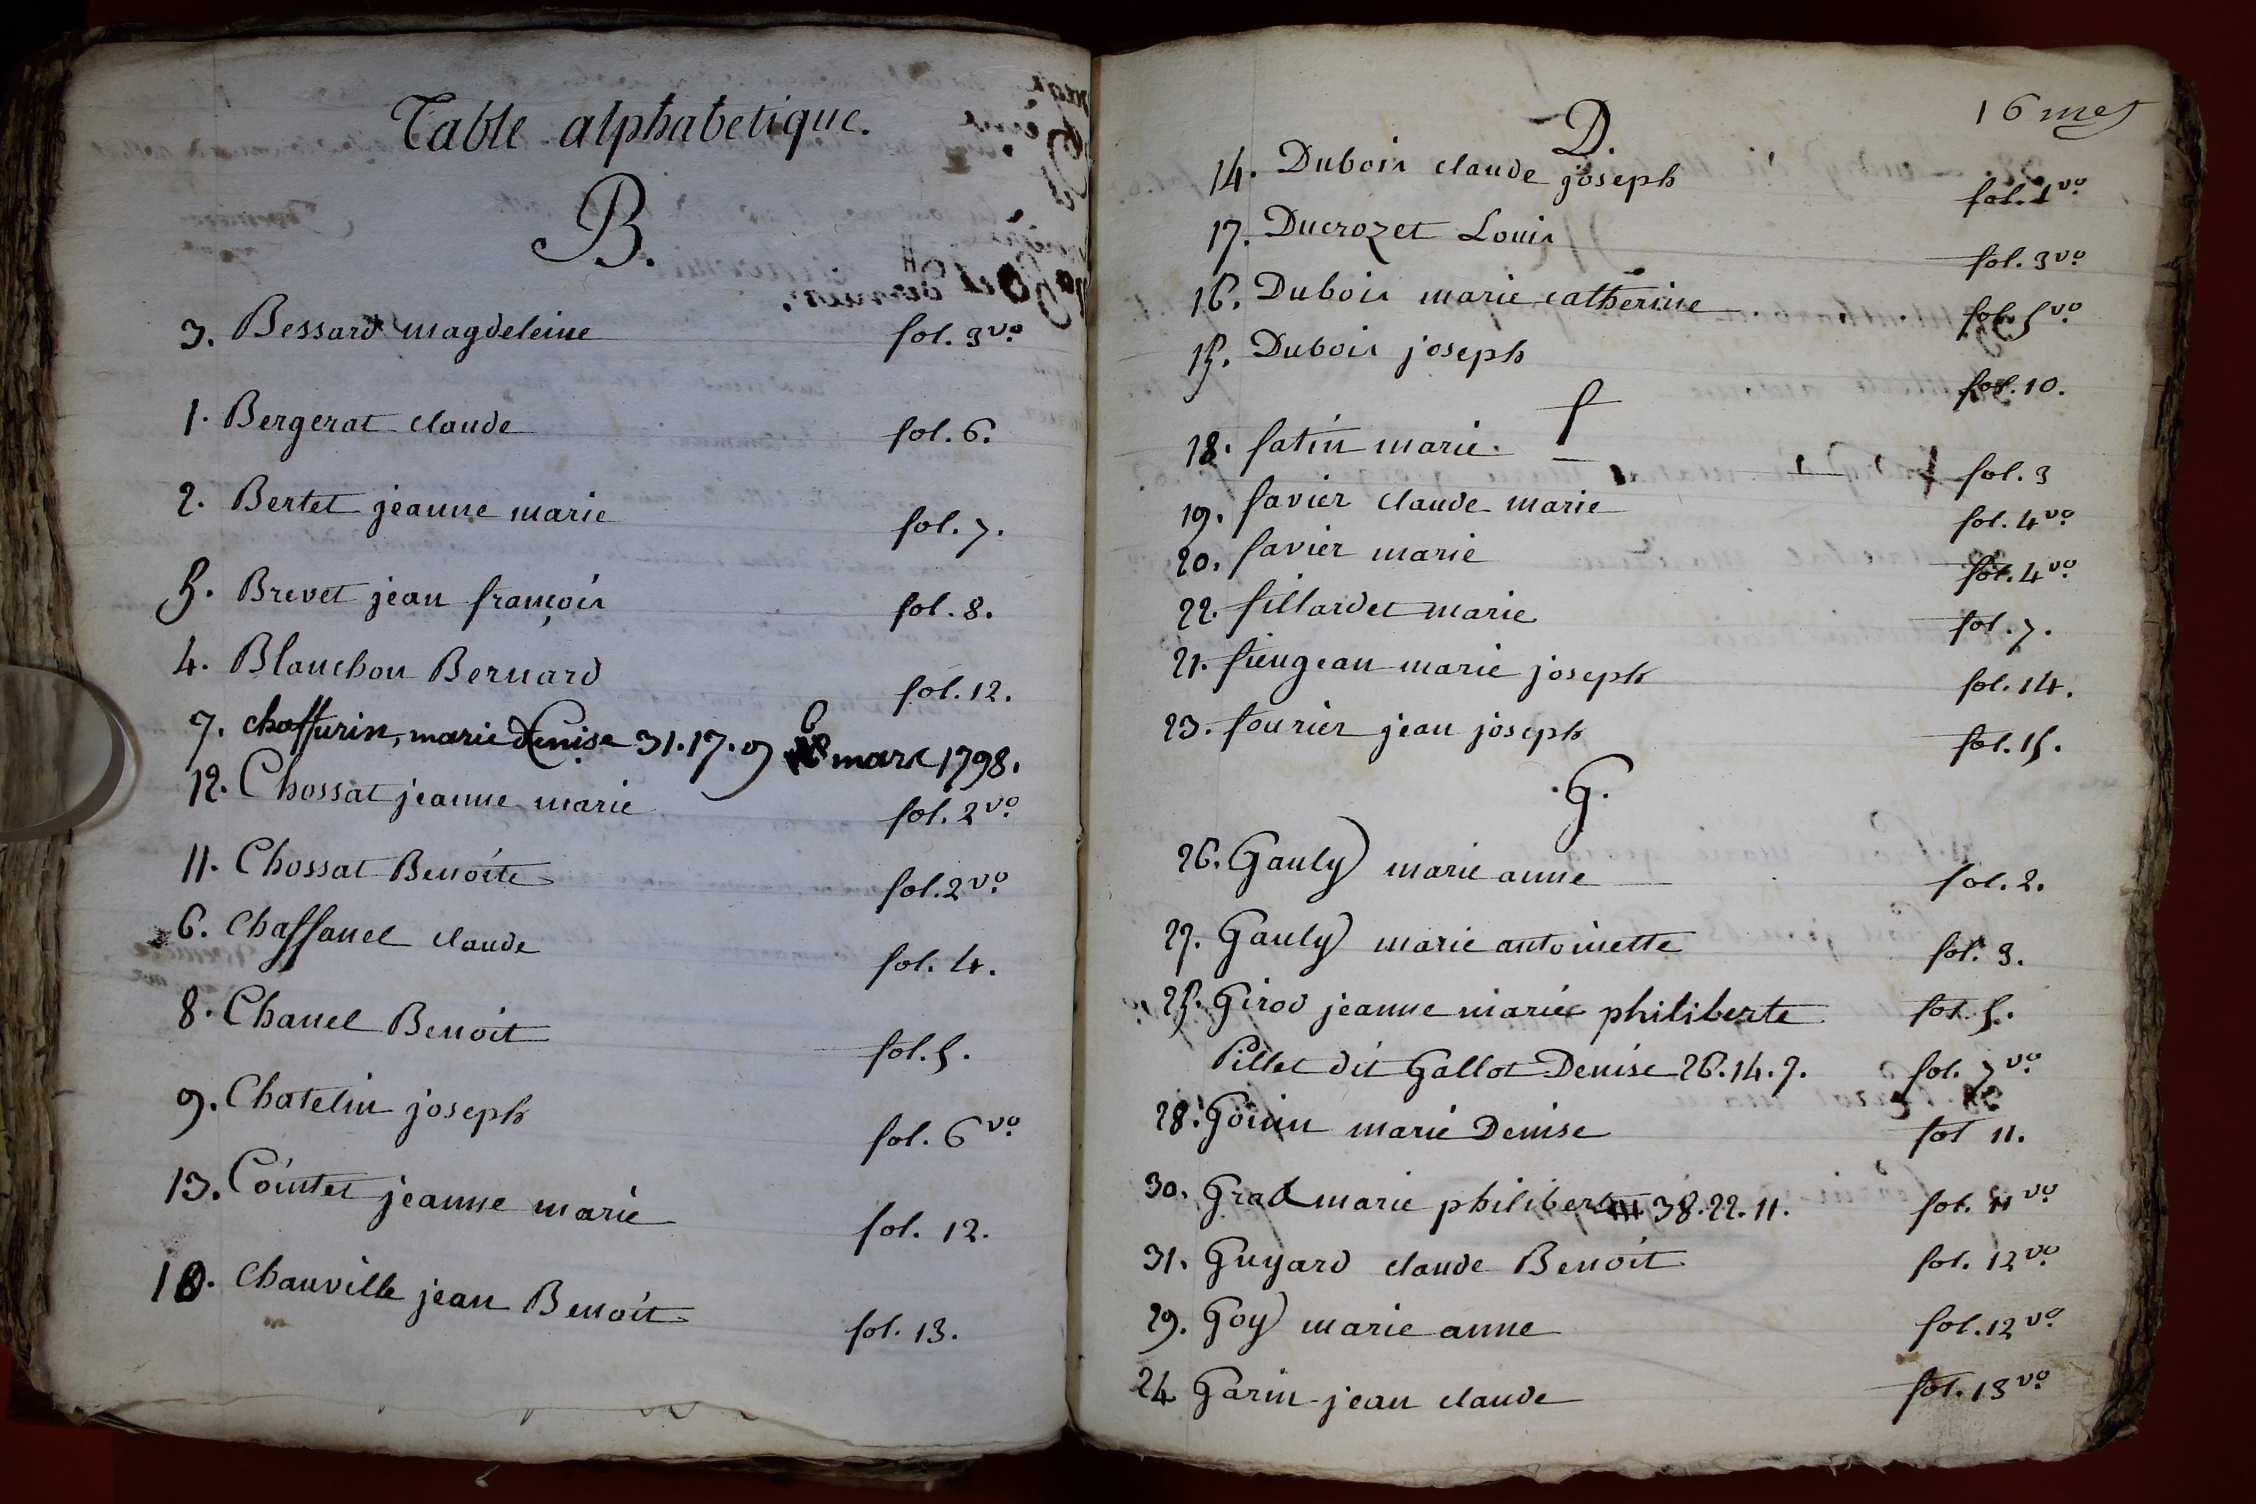 Table alphabetique.
B.
3. Bessard magdeleine fol. 3 vo.
1. Bergerat claude fol. 6.
2. Bertet jeanne marie fol. 7.
5. Brevet jean françois fol. 8.
4. Blanchon Bernard fol. 12.
7. chaffurin, marie Denise 31.17.9 mars 1798.
12. Chossat jeanne marie fol. 2 vo.
11. Chossat Benoite fol. 2 vo.
6. Chaffanel claude fol. 4.
8. Chanel Benoit fol. 5.
9. Chatelin joseph fol. 6 vo.
13. Cointet jeanne marie fol. 12.
10. Chauville jean Benoit fol. 13.
16 mes
D.
14. Dubois claude joseph fol. 1 vo.
17. Ducrozet Louis fol. 3 vo.
16. Dubois marie catherine fol. 5 vo
15. Dubois joseph fol. 10.
f
18. fatin marie fol. 3
19. favier claude marie fol. 4 vo.
20. favier marie fol. 4 vo.
22. fillardet marie fol. 7.
21. fiengean marie joseph fol. 14.
23. fourier jean joseph fol. 15.
.G.
26. Gauly marie anne fol. 2.
27. Gauly marie antoinette fol. 3.
25. Girod jeanne marie philiberte fol. 5.
Pillet dit Gallot Denise 26.14.7. fol. 7 vo.
28. Goiin marie Denise fol 11.
30. Grad marie philibert 38.22.11. fol. 11 vo
31. Guyard claude Benoit fol. 12 vo.
29. Goy marie anne fol. 12 vo.
24 Garin jean claude fol. 13 vo.